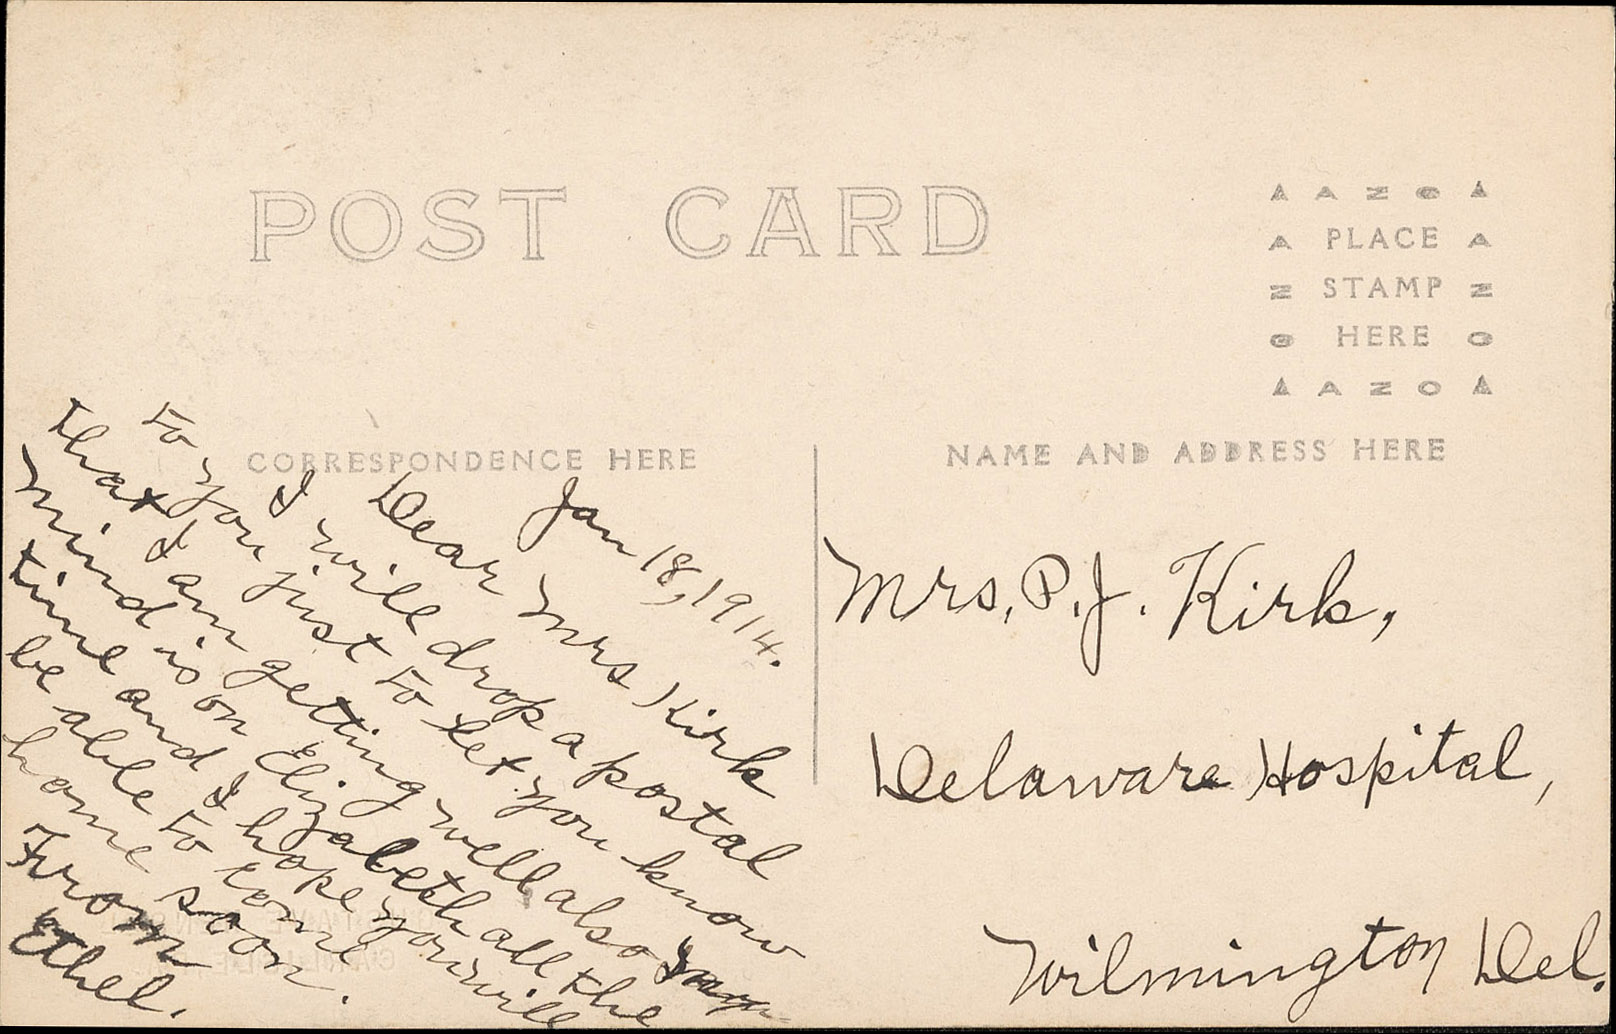 POST CARD
▲ A Z O ▲
A PLACE A
Z STAMP Z
O HERE O
▲ A Z O ▲
CORRESPONDENCE HERE
NAME AND ADDRESS HERE
Jan 18, 1914.
Dear Mrs Kirk
I will drop a postal
to you just to let you know
that I am getting well also
mind is on Elizabeth all the
time and I hope you will
be able to come
home soon.
From
Ethel.
Mrs. P. J. Kirk,
Delaware Hospital,
Wilmington Del.